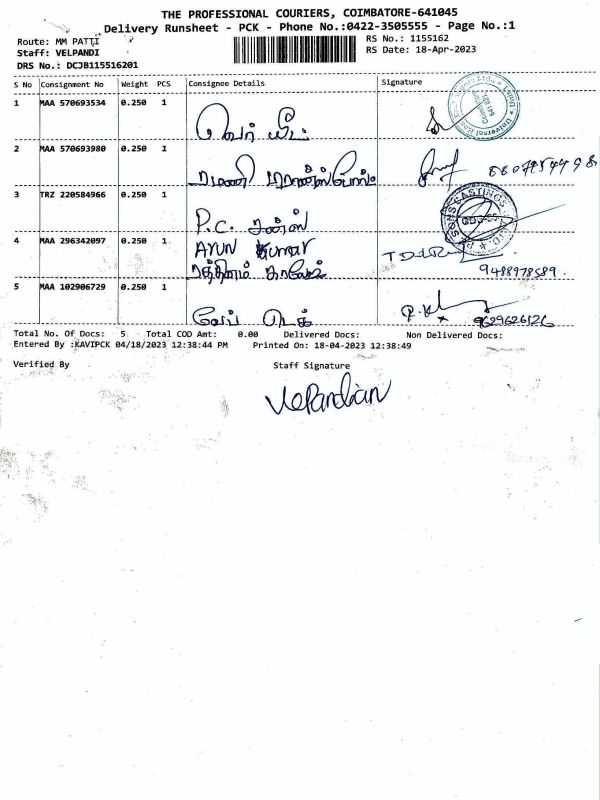 THE PROFESSIONAL COURIERS, COIMBATORE-641045
Delivery Runsheet - PCK - Phone No.:0422-3505555 - Page No.:1
Route: MM PATTI
RS No.: 1155162
Staff: VELPANDI
RS Date: 18-Apr-2023
DRS No.: DCJB115516201
S No Consignment No Weight PCS Consignee Details Signature
1 MAA 570693534 0.250 1
2 MAA 570693980 0.250 1
ரமணி
3 TRZ 220584966 0.250 1
P.C. சன்ஸ்
4 MAA 296342097 0.250 1 Arun Kumar
ரத்தினம்
9488978589.
5 MAA 102906729 0.250 1
9629626126
Total No. Of Docs: 5 Total COD Amt: 0.00 Delivered Docs: Non Delivered Docs:
Entered By :KAVIPCK 04/18/2023 12:38:44 PM Printed On: 18-04-2023 12:38:49
Verified By Staff Signature
VelPandian